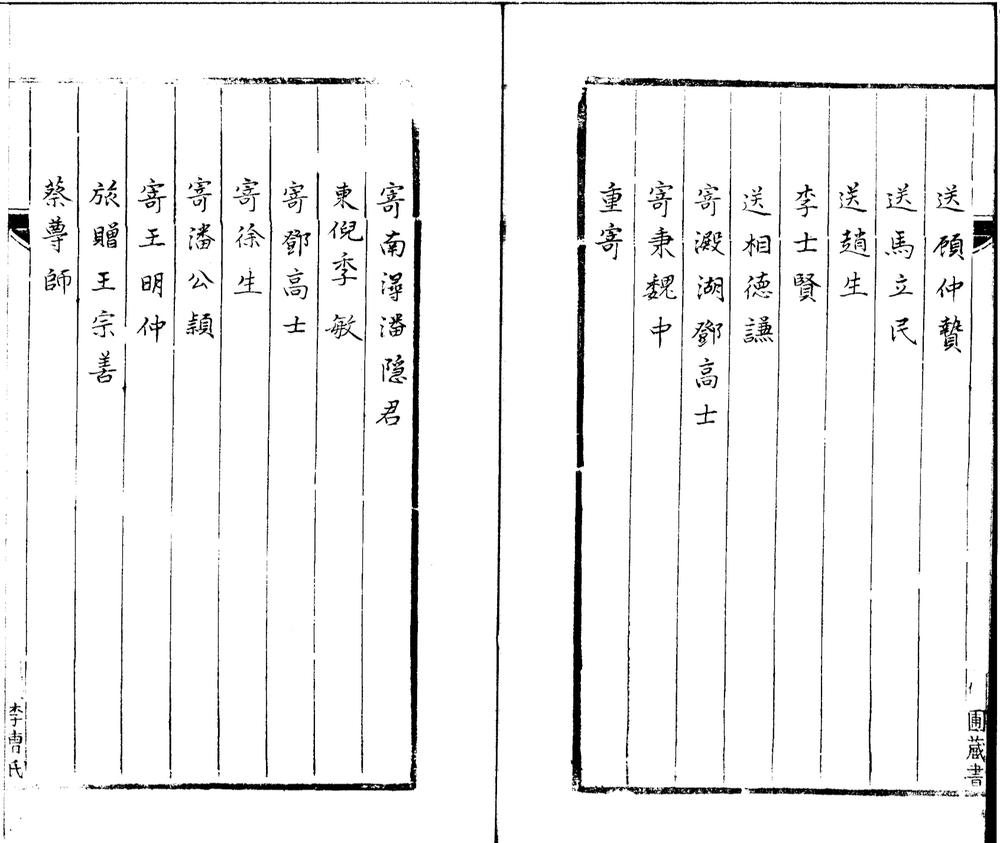 送顧仲贄
送馬立民
送趙生
李士賢
送相德謙
寄澱湖鄧高士
寄秉魏中
重寄
圃藏書
寄南潯潘隠君
東倪季敏
寄鄧高士
寄徐生
寄潘公頴
寄王明仲
旅贈王宗善
蔡蓴師
李曹氏